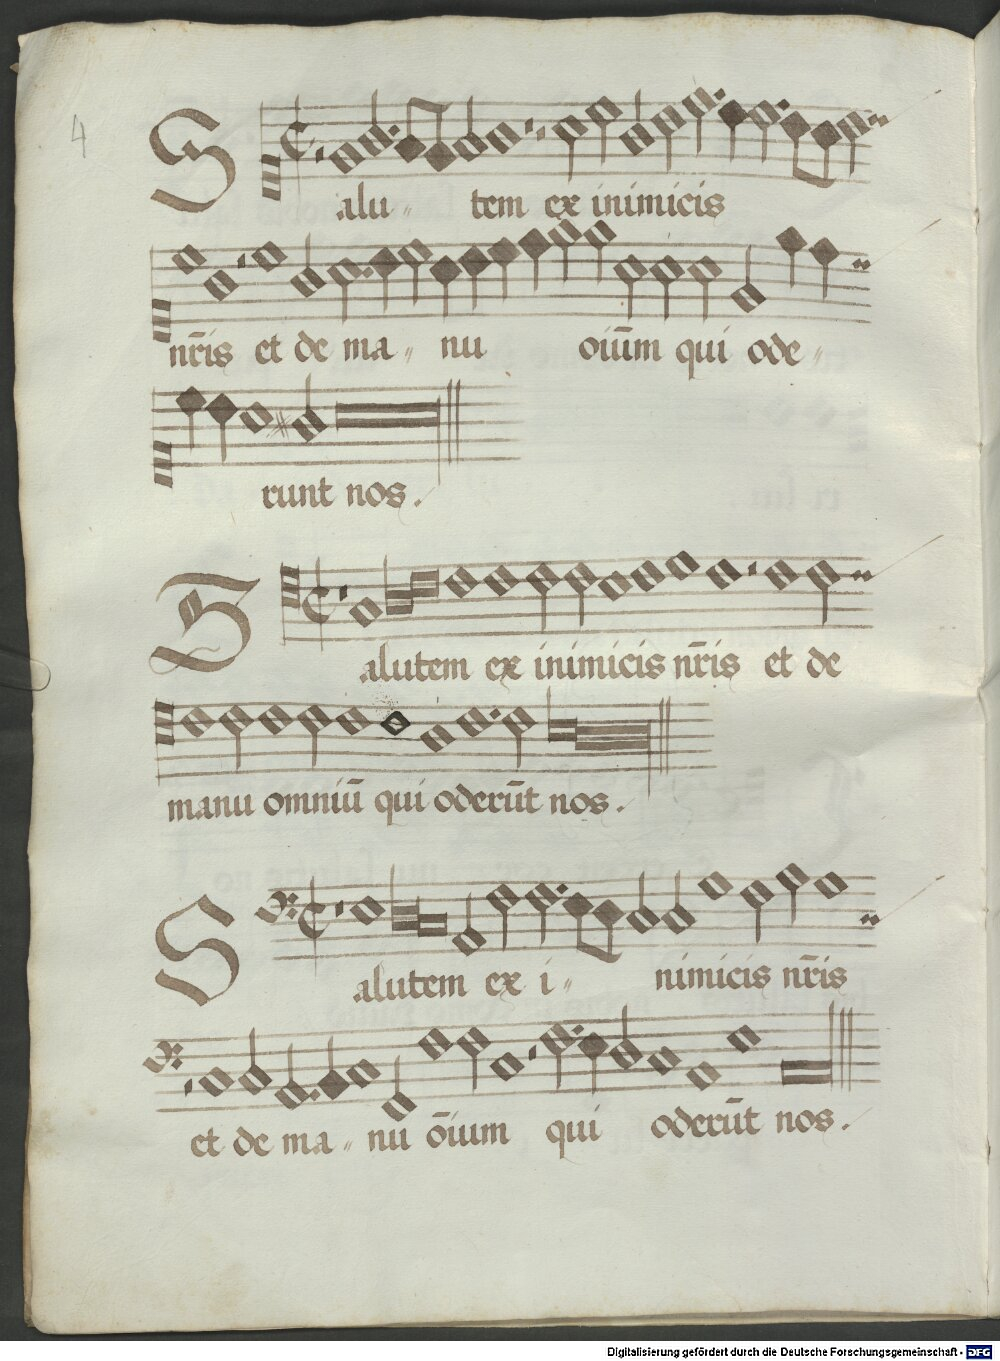 4
Salu - tem ex inimicis
nr̄is et de ma - nu oiūm qui ode -
runt nos.
Salutem ex inimicis nr̄is et de
manu omniū qui oderūt nos.
Salutem ex i - nimicis nr̄is
et de ma - nu ōium qui oderūt nos.
Digitalisierung gefördert durch die Deutsche Forschungsgemeinschaft - DFG